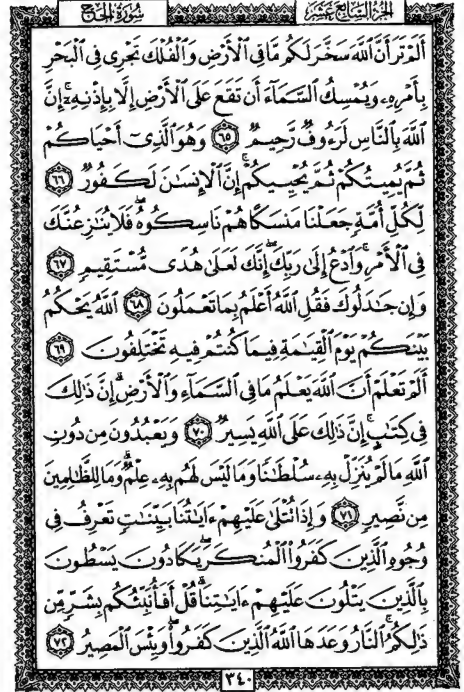 الجزء السابع عشر سورة الحج
أَلَمْ تَرَ أَنَّ ٱللَّهَ سَخَّرَ لَكُم مَّا فِى ٱلْأَرْضِ وَٱلْفُلْكَ تَجْرِى فِى ٱلْبَحْرِ
بِأَمْرِهِۦ وَيُمْسِكُ ٱلسَّمَآءَ أَن تَقَعَ عَلَى ٱلْأَرْضِ إِلَّا بِإِذْنِهِۦٓ ۗ إِنَّ
ٱللَّهَ بِٱلنَّاسِ لَرَءُوفٌ رَّحِيمٌ ٦٥ وَهُوَ ٱلَّذِىٓ أَحْيَاكُمْ
ثُمَّ يُمِيتُكُمْ ثُمَّ يُحْيِيكُمْ ۗ إِنَّ ٱلْإِنسَٰنَ لَكَفُورٌ ٦٦
لِكُلِّ أُمَّةٍ جَعَلْنَا مَنسَكًا هُمْ نَاسِكُوهُ ۖ فَلَا يُنَٰزِعُنَّكَ
فِى ٱلْأَمْرِ ۚ وَٱدْعُ إِلَىٰ رَبِّكَ ۖ إِنَّكَ لَعَلَىٰ هُدًى مُّسْتَقِيمٍ ٦٧
وَإِن جَٰدَلُوكَ فَقُلِ ٱللَّهُ أَعْلَمُ بِمَا تَعْمَلُونَ ٦٨ ٱللَّهُ يَحْكُمُ
بَيْنَكُمْ يَوْمَ ٱلْقِيَٰمَةِ فِيمَا كُنتُمْ فِيهِ تَخْتَلِفُونَ ٦٩
أَلَمْ تَعْلَمْ أَنَّ ٱللَّهَ يَعْلَمُ مَا فِى ٱلسَّمَآءِ وَٱلْأَرْضِ ۗ إِنَّ ذَٰلِكَ
فِى كِتَٰبٍ ۚ إِنَّ ذَٰلِكَ عَلَى ٱللَّهِ يَسِيرٌ ٧٠ وَيَعْبُدُونَ مِن دُونِ
ٱللَّهِ مَا لَمْ يُنَزِّلْ بِهِۦ سُلْطَٰنًا وَمَا لَيْسَ لَهُم بِهِۦ عِلْمٌ ۗ وَمَا لِلظَّٰلِمِينَ
مِن نَّصِيرٍ ٧١ وَإِذَا تُتْلَىٰ عَلَيْهِمْ ءَايَٰتُنَا بَيِّنَٰتٍ تَعْرِفُ فِى
وُجُوهِ ٱلَّذِينَ كَفَرُوا۟ ٱلْمُنكَرَ ۖ يَكَادُونَ يَسْطُونَ
بِٱلَّذِينَ يَتْلُونَ عَلَيْهِمْ ءَايَٰتِنَا ۗ قُلْ أَفَأُنَبِّئُكُم بِشَرٍّ مِّن
ذَٰلِكُمُ ۗ ٱلنَّارُ وَعَدَهَا ٱللَّهُ ٱلَّذِينَ كَفَرُوا۟ ۖ وَبِئْسَ ٱلْمَصِيرُ ٧٢
٣٤٠